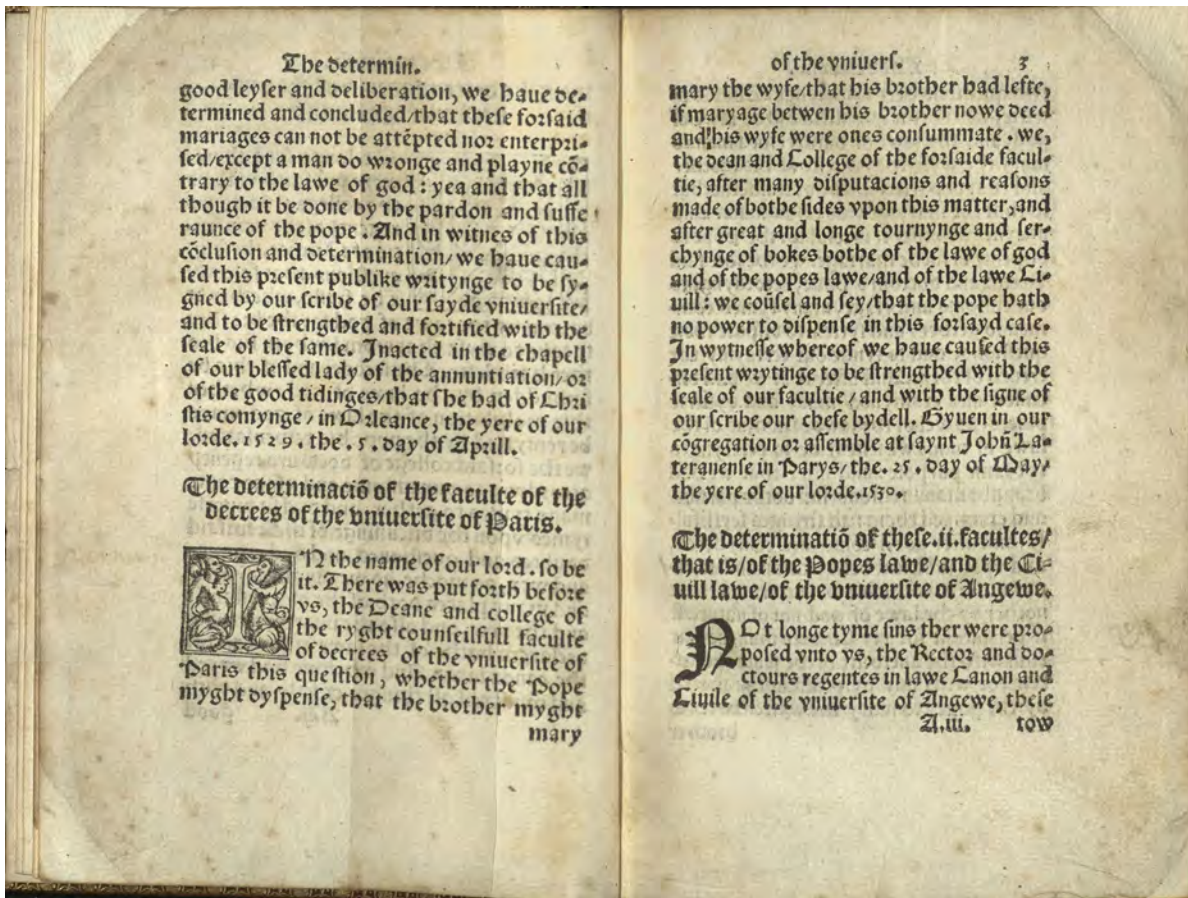 The determin.
good leyser and deliberation, we haue de-
termined and concluded/that these forsaid
mariages can not be attēpted nor enterpri-
sed/except a man do wronge and playne cō-
trary to the lawe of god: yea and that all
though it be done by the pardon and suffe
raunce of the pope. And in witnes of this
cōclusion and determination/ we haue cau-
sed this present publike writynge to be sy-
gned by our scribe of our sayde vniuersite/
and to be strengthed and fortified with the
seale of the same. Inacted in the chapell
of our blessed lady of the annuntiation/ or
of the good tidinges/that she had of Chri
stis comynge / in Orleance, the yere of our
lorde. 1529. the. 5. day of Aprill.
The determinaciō of the faculte of the
decrees of the vniuersite of Paris.
IN the name of our lord. so be
it. There was put forth before
vs, the Deane and college of
the ryght counseilfull faculte
of decrees of the vniuersite of
Paris this question, whether the Pope
myght dyspense, that the brother myght
mary
of the vniuers. 3
mary the wyfe/that his brother had lefte,
if maryage betwen his brother nowe deed
and his wyfe were ones consummate. we,
the dean and College of the forsaide facul-
tie, after many disputacions and reasons
made of bothe sides vpon this matter, and
after great and longe tournynge and ser-
chynge of bokes bothe of the lawe of god
and of the popes lawe/and of the lawe Ci-
uill: we coūsel and sey/that the pope hath
no power to dispense in this forsayd case.
In wytnesse whereof we haue caused this
present wrytinge to be strengthed with the
seale of our facultie / and with the signe of
our scribe our chefe bydell. Gyuen in our
cōgregation or assemble at saynt Johñ La-
teranense in Parys/the. 25. day of May/
the yere of our lorde.1530.
The determinatiō of these.ii.facultes/
that is/of the Popes lawe/and the Ci-
uill lawe/of the vniuersite of Angewe.
NOt longe tyme sins ther were pro-
posed vnto vs, the Rector and do-
ctours regentes in lawe Canon and
Ciuile of the vniuersite of Angewe, these
A.iii. tow